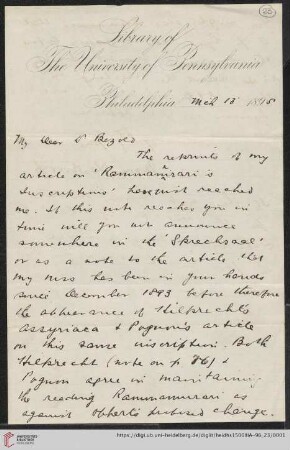 Library of
The University of Pennsylvania
Philadelphia Mch 13 1895
My Dear Dr Bezold
The reprints of my
article on 'Rammannirari's
Inscriptions' have just reached
me. If this note reaches you in
time will you not announce
somewhere in the 'Sprechsaal'
or as a note to the article that
my mss has been in your hands
since December 1893 before therefore
the appearance of Hilprecht's
Assyriaca & Pognon's article
on this same inscription. Both
Hilprecht (note on p 86) &
Pognon agree in maintaining
the reading Rammannirari as
against Oppert's change.
https://digi.ub.uni-heidelberg.de/diglit/heidhs1500IIIA-96_23/0001